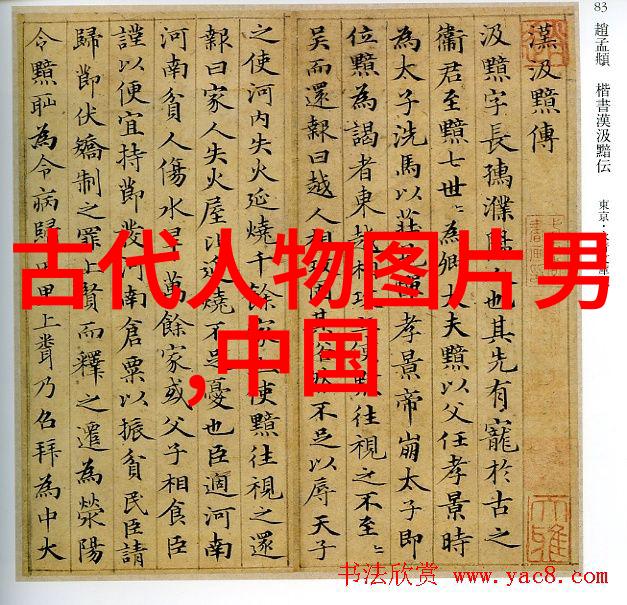 83
趙孟頫 楷書漢汲黯伝 東京:
漢汲黯傳
汲黯字長孺濮陽人也其先有寵於古之
衞君至黯七世〻為卿大夫黯以父任孝景時
為太子洗馬以莊見憚孝景帝崩太子即
位黯為謁者東越相攻上使黯往視之不至〻
吳而還報曰越人相攻固其俗然不足以辱天子
之使河内失火延燒千餘家上使黯往視之還
報曰家人失火屋比延燒不足憂也臣適河南
河南貧人傷水旱萬餘家或父子相食臣
謹以便宜持節發河南倉粟以振貧民臣請
歸節伏矯制之罪上賢而釋之遷為滎陽
令黯恥為令病歸田里上聞乃召拜為中大
古代人物图片男
,中国
书法欣赏 www.yac8.com